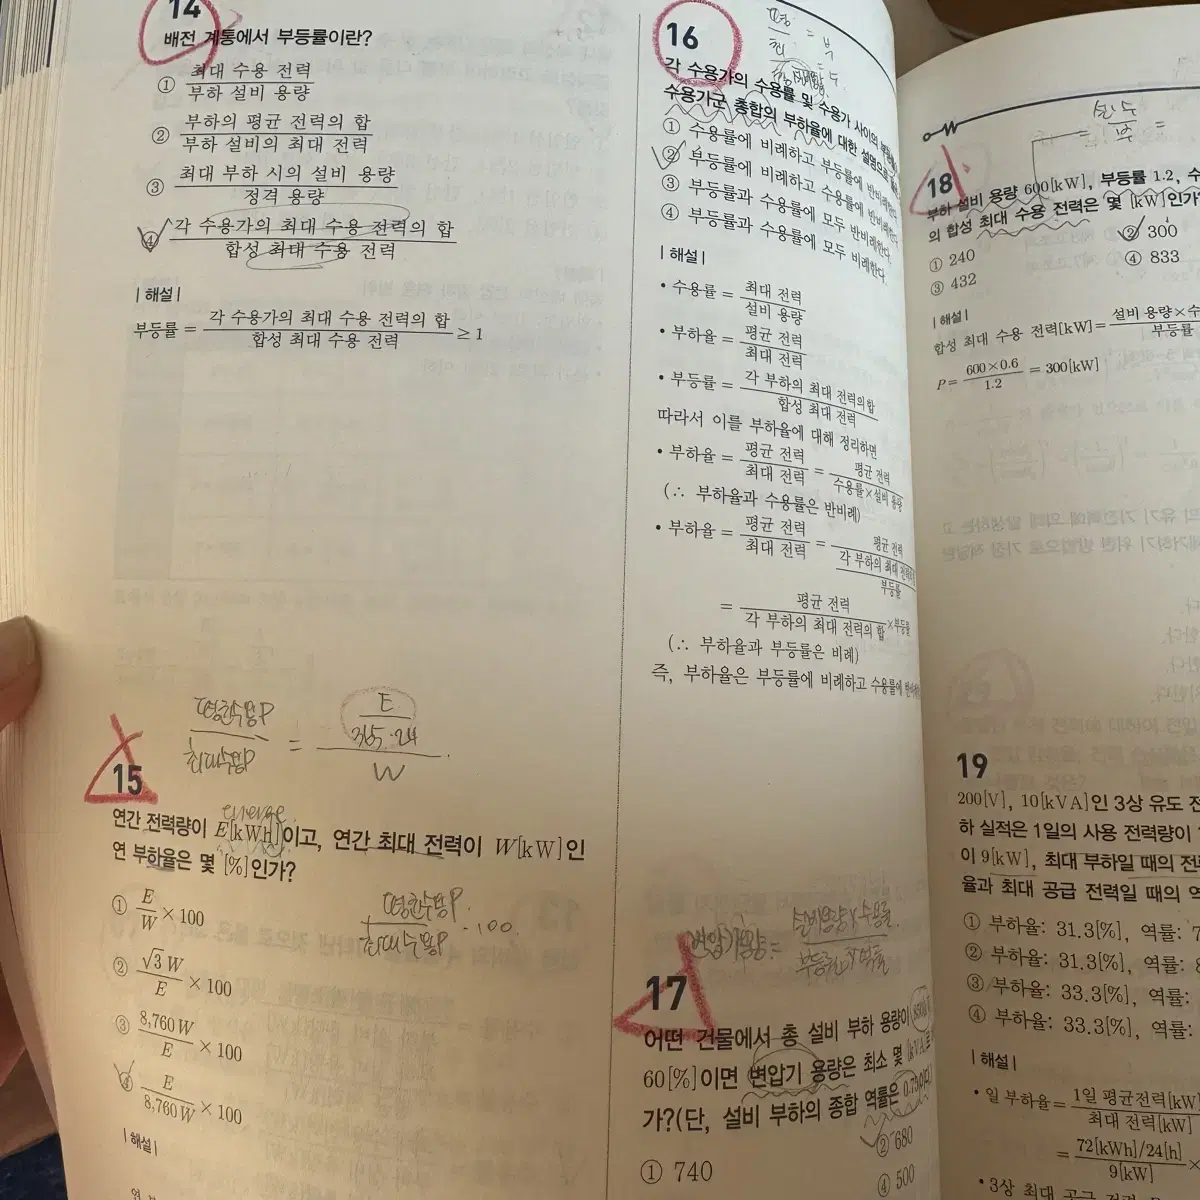 14
배전 계통에서 부등률이란?
① 최대 수용 전력 / 부하 설비 용량
② 부하의 평균 전력의 합 / 부하 설비의 최대 전력
③ 최대 부하 시의 설비 용량 / 정격 용량
④ 각 수용가의 최대 수용 전력의 합 / 합성 최대 수용 전력
| 해설 |
부등률 = 각 수용가의 최대 수용 전력의 합 / 합성 최대 수용 전력 ≥ 1
= E / 365·24 / W
15
연간 전력량이 E[kWh]이고, 연간 최대 전력이 W[kW]인
연 부하율은 몇 [%]인가?
① E / W × 100
② √3 W / E × 100
·100
③ 8,760 W / E × 100
④ E / 8,760 W × 100
| 해설 |
16
각 수용가의 수용률 및 수용가 사이의
수용가군 종합의 부하율에 대한 설명으로
① 수용률에 비례하고 부등률에 반비례한다.
② 부등률에 비례하고 수용률에 반비례한다.
③ 부등률과 수용률에 모두 반비례한다.
④ 부등률과 수용률에 모두 비례한다.
| 해설 |
• 수용률 = 최대 전력 / 설비 용량
• 부하율 = 평균 전력 / 최대 전력
• 부등률 = 각 부하의 최대 전력의 합 / 합성 최대 전력
따라서 이를 부하율에 대해 정리하면
• 부하율 = 평균 전력 / 최대 전력 = 평균 전력 / 수용률×설비 용량
(∴ 부하율과 수용률은 반비례)
• 부하율 = 평균 전력 / 최대 전력 = 평균 전력 / 각 부하의 최대 / 부등률
= 평균 전력 / 각 부하의 최대 전력의 합 ×부등률
(∴ 부하율과 부등률은 비례)
즉, 부하율은 부등률에 비례하고 수용률에
변압기용량 = 설비용량×수용률 / 부등률×역률
17
어떤 건물에서 총 설비 부하 용량이
60[%]이면 변압기 용량은 최소 몇 [kVA]로
가?(단, 설비 부하의 종합 역률은 0.75이다.)
① 740
② 680
④ 500
18
부하 설비 용량 600[kW], 부등률 1.2,
의 합성 최대 수용 전력은 몇 [kW]인가?
① 240
② 300
③ 432
④ 833
| 해설 |
합성 최대 수용 전력[kW] = 설비 용량× / 부등률
P = 600×0.6 / 1.2 = 300[kW]
19
200[V], 10[kVA]인 3상 유도
하 실적은 1일의 사용 전력량이
이 9[kW], 최대 부하일 때의
율과 최대 공급 전력일 때의
① 부하율: 31.3[%], 역률:
② 부하율: 31.3[%], 역률:
③ 부하율: 33.3[%], 역률:
④ 부하율: 33.3[%], 역률:
| 해설 |
• 일 부하율 = 1일 평균전력[kW] / 최대 전력[kW]
= 72[kWh]/24[h] / 9[kW] ×
• 3상 최대 공급 전력